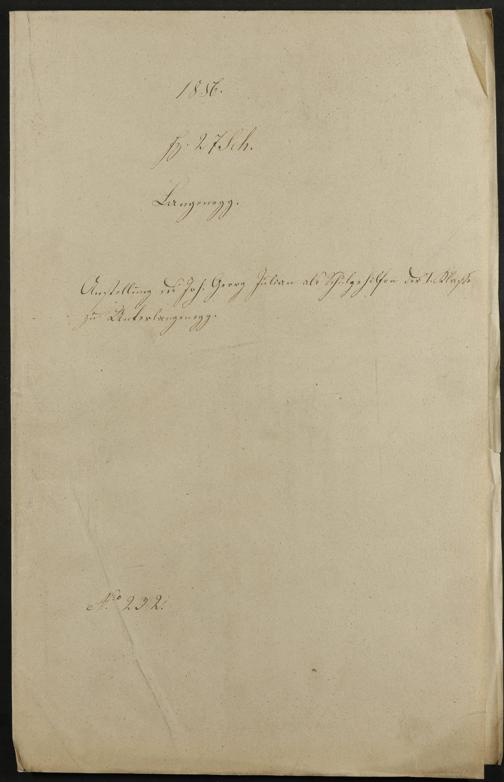 1856.
fz. 27 Sch.
Langenegg.
Anstellung des Joh. Georg Julian als Schulgehilfen der 1. Klasse
zu Unterlangenegg.
Nro 232.